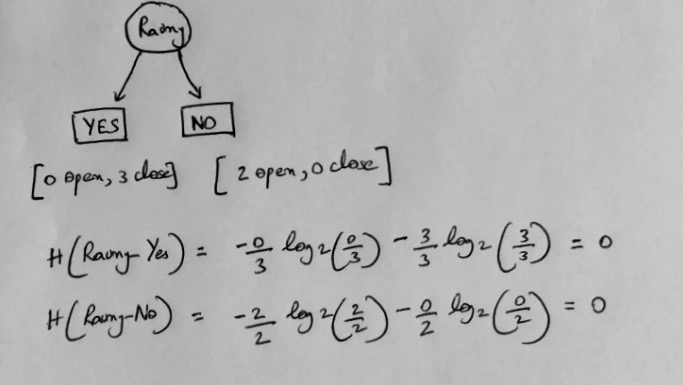 Rainy
YES NO
[0 open, 3 close] [2 open, 0 close]
H(Rainy-Yes) = -0/3 log2(0/3) - 3/3 log2(3/3) = 0
H(Rainy-No) = -2/2 log2(2/2) - 0/2 log2(0/2) = 0